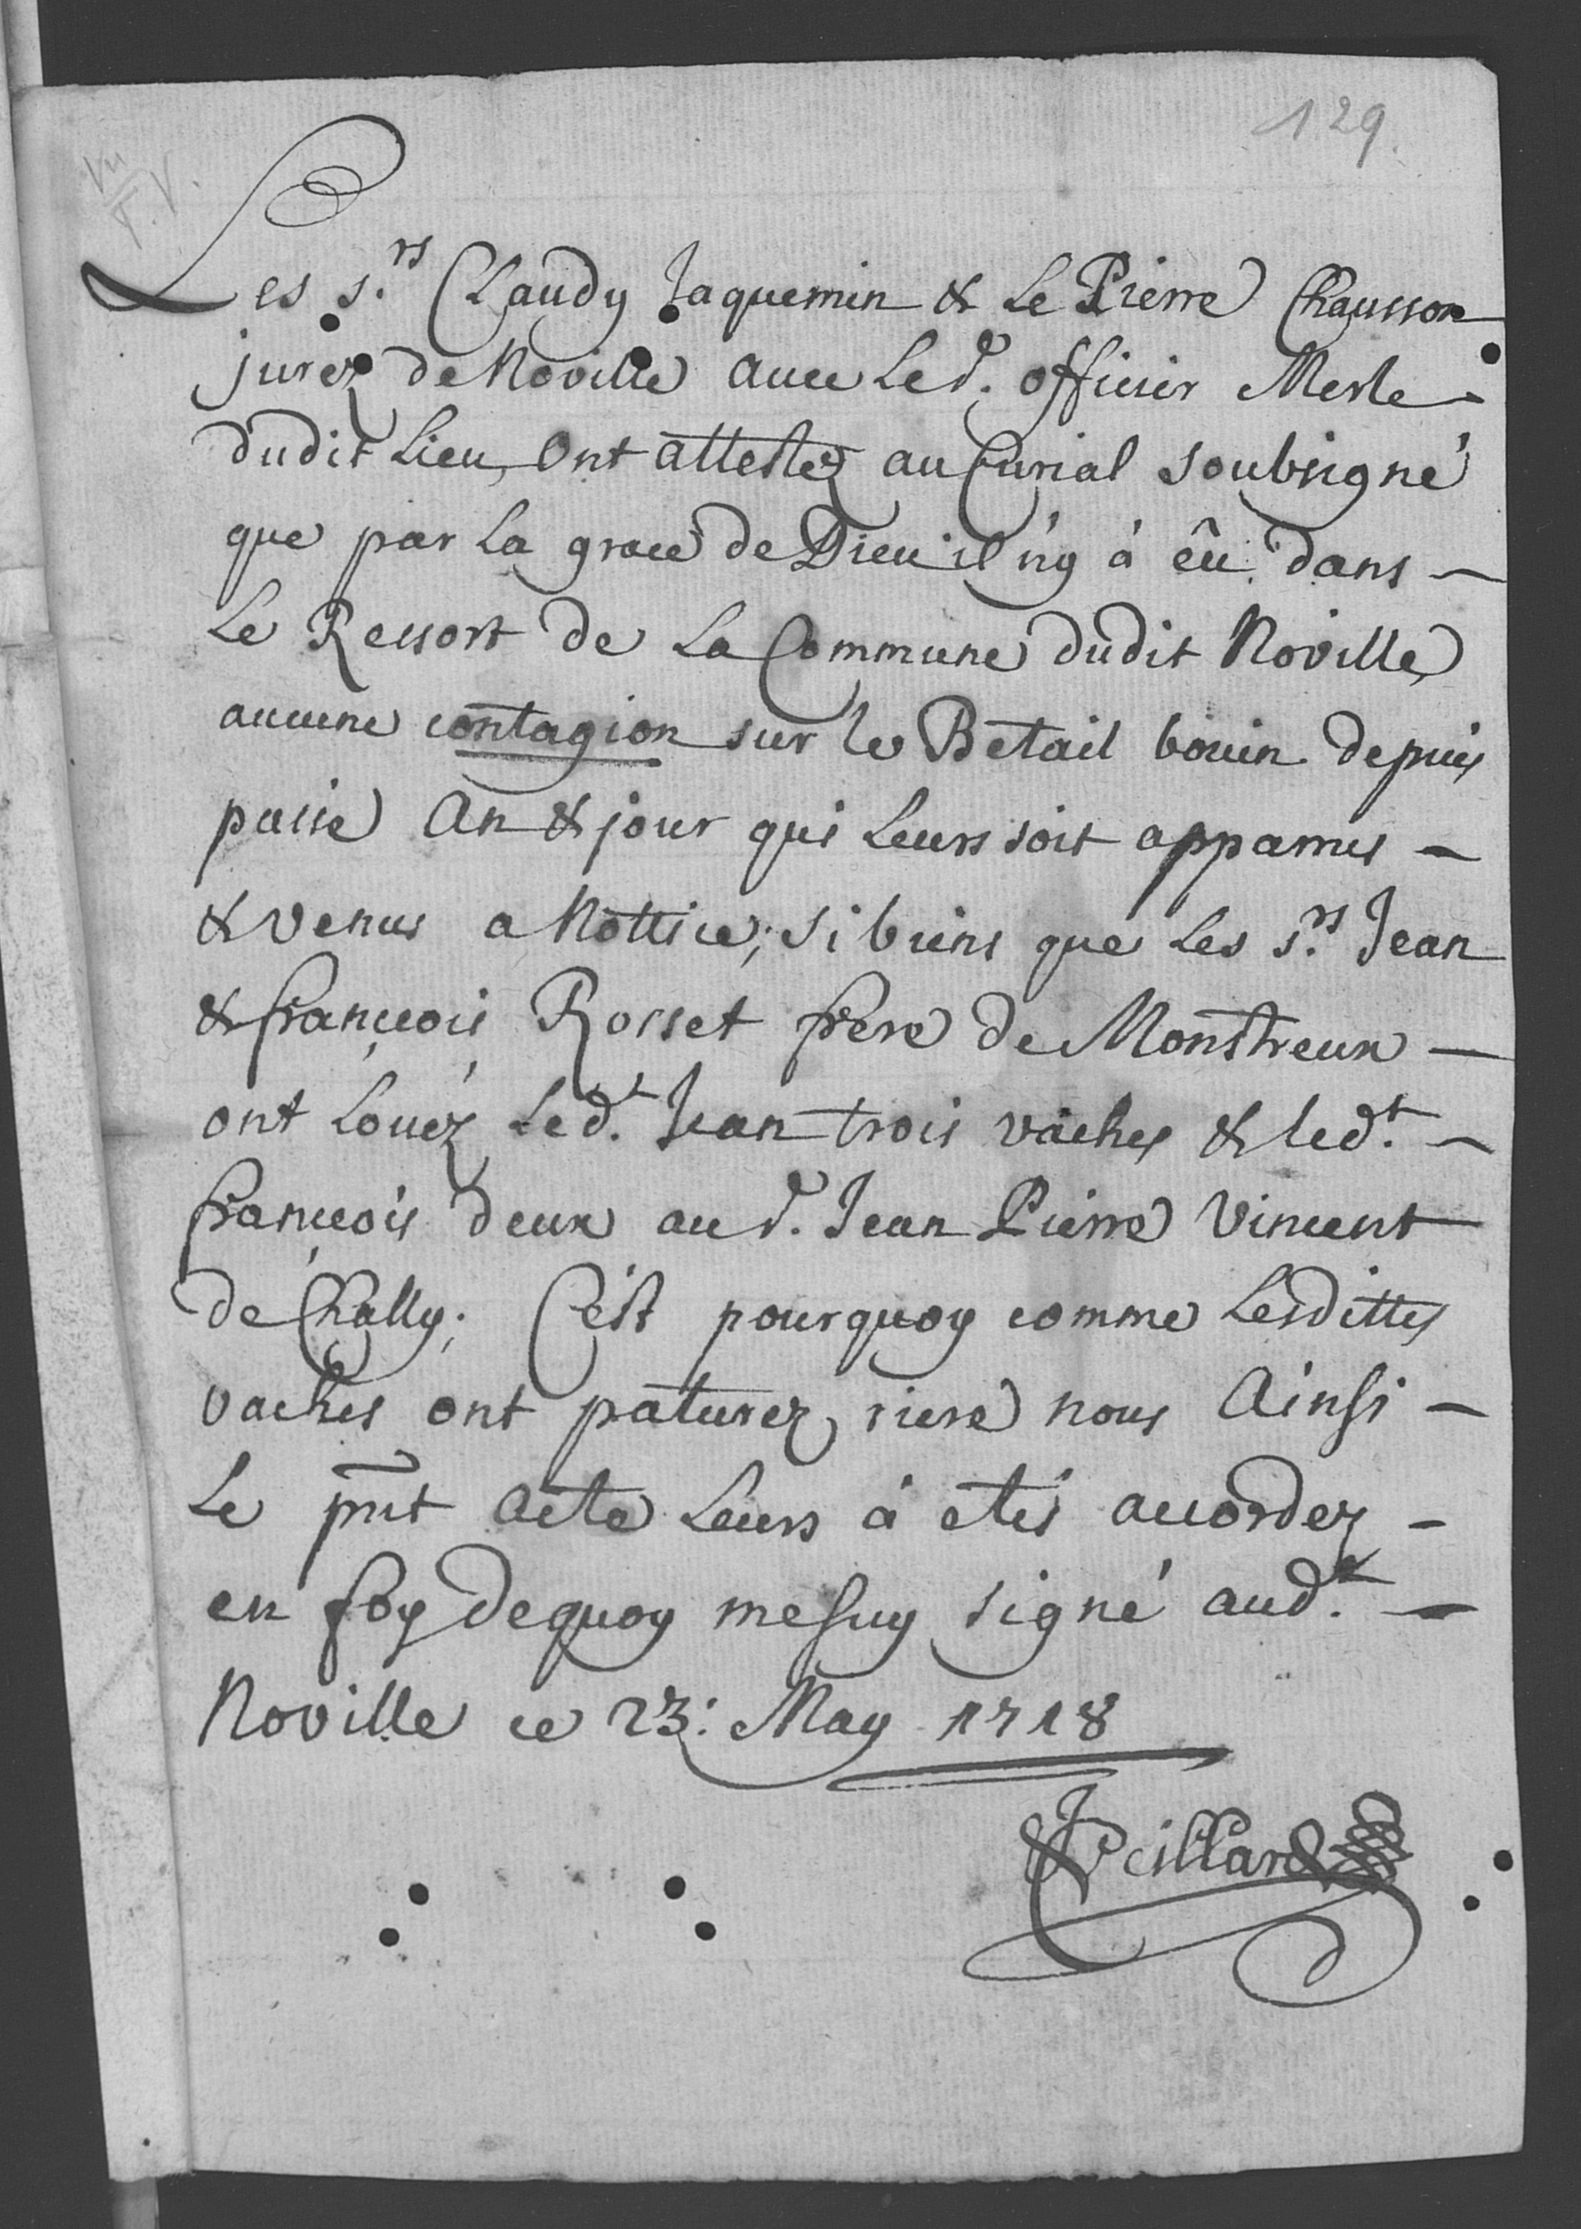 129.
Les s.rs Claudy Jaquemin & Le Pierre Chausson
jurez de Noville avec Le d. officier Mesle
dudit Lieu, Ont attestez au Curial soubsigné
que par La grace de Dieu il n'y à êu dans
Le Ressort de La Commune dudit Noville,
aucune contagion sur le Betail bovin depuis
passé An & jour qui Leurs soit apparrus
& venus a Nottice; si biens que Les s.rs Jean
& françois Rosset frere de Monstreux
ont Louéz Led.t Jean trois vaches & led.t
françois deux au d. Jean Pierre Vincent
de Chally; C'est pourquoy comme Lesdittes
vaches ont paturez riere nous Ainsi
Le pn̄t Acte Leurs à etés accordez
en foy dequoy me suy signé aud.t
Noville ce 23: May 1718